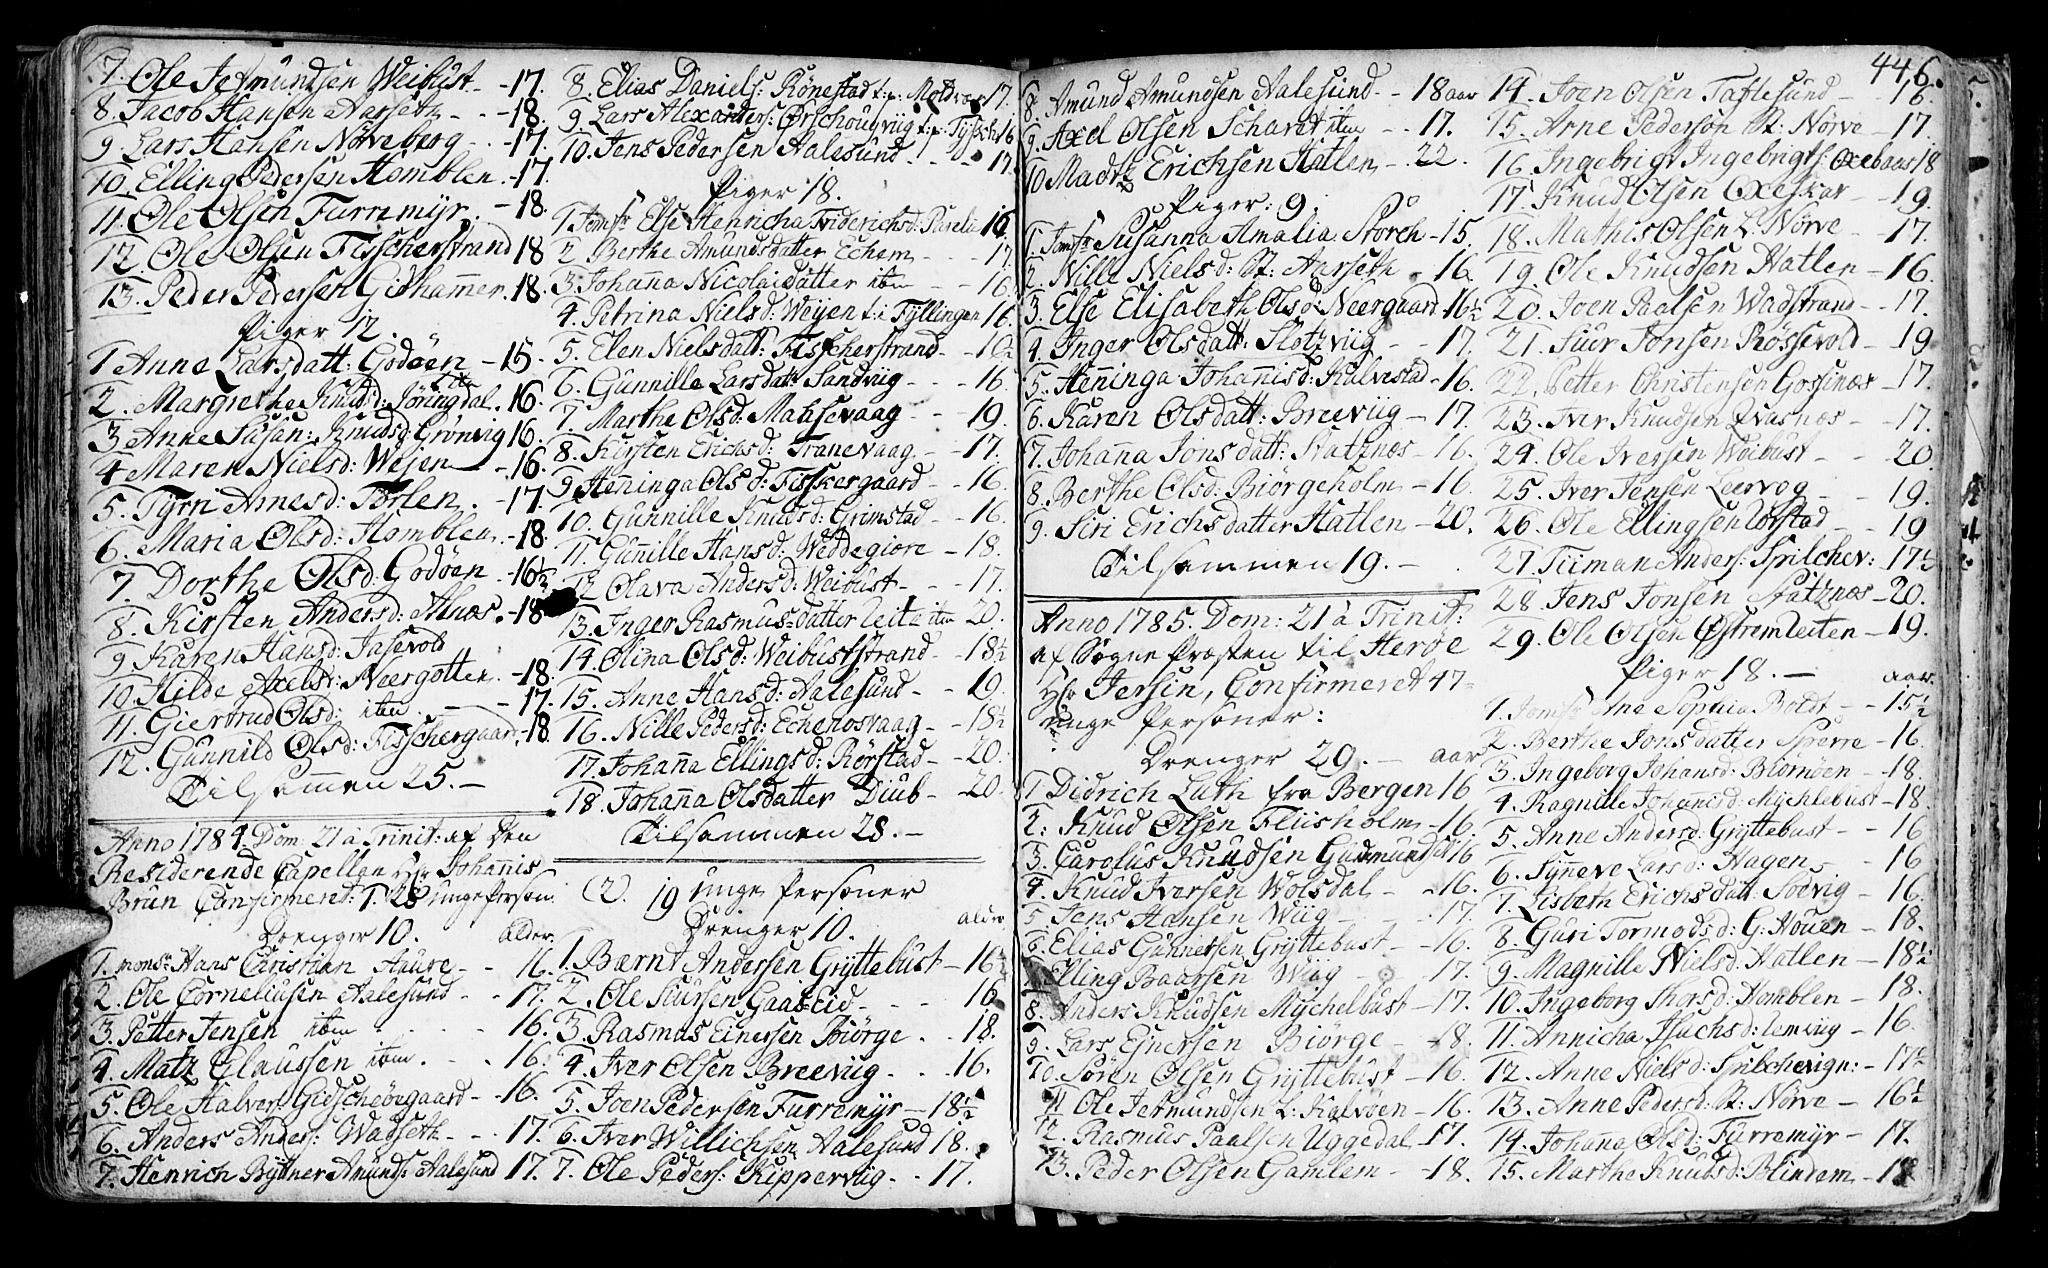 7. Ole Jetmundsen Weibust - 17.
8. Jacob Hansen Aarseth - 18.
9. Lars Hansen Nörveberg - 17.
10. Elling Pedersen Homblen - 17.
11. Ole Olsen Furremÿr - 18.
12. Ole Olsen Fisscherstrand 18
13. Peder Pedersen Gidhammer. 18.
Piger 12.
1 Anne Larsdatt: Godöen - 15.
2. Margrethe Knudsd: Jöringdal. 16.
3 Anne Susan: Knudsd: Grönvig 16.
4 Maren Nielsd: Wejen - 16.
5. Tÿrri Arnesd: - 17.
6. Maria Olsd: Homblen - 18.
7. Dorthe Olsd: Godöen - 16½
8. Kirsten Andersd: Alnæs - 18
9 Karen Hansd: Jasevold
10 Hilde Axelsd: Neergotten - 18.
11. Giertrud Olsd: item - 17.
12. Gunnild Olsd: Fisschergaard - 18.
Tilsammen 25. -
Anno 1784. Dom: 21 à Trinit: af Den
Residerende Capellan Hr: Johannis
Brun Confirmeret: 1. 28 unge Person.
Drenger 10. alder.
1. mons: Hans Christian Aure - 16.
2. Ole Corneliusen Aalesund - 17.
3. Petter Jensen item - 16.
4. Matz Claussen item - 16.
5. Ole Halvors: Gidscheögaard - 16.
6. Anders Anders: Wadseth - 17.
7. Henrich Büttner Amunds: Aalesund 17.
8. Elias Daniels: Rönestad t: p: Moldvær 17.
9 Lars Alexanders: Ørschougviig t: p: 16
10. Jens Pedersen Aalesund - 17.
Piger 18.
1 Jomfr Else Henricha Friderichsd: 16
2. Berthe Amundsdatter Echem - 17
3. Johanna Nicolaidatter item - 16
4. Petrina Nielsd: Weÿen t: i Tÿllingen 16.
5. Elen Nielsdatt: Fisscherstrand -
6. Gunnille Larsdatt Sandviig - 16.
7. Marthe Olsd: Mahsevaag - 19.
8. Kirsten Erichsd: Tranevaag - 17.
9 Henninga Olsd: Fisskergaard - 16.
10. Gunnille Knudsd: Grimstad - 16.
11. Gunnille Hansd: Weddegiære - 18.
12 Olava Andersd: Weibust - 17.
13. Inger Rasmusdatter Leite item 20.
14. Olina Olsd: Weibuststrand - 18½
15. Anne Hansd: Aalesund - 19.
16. Nille Pedersd: Echenosvaag - 18½
17. Johanna Ellingsd: Rörstad - 20.
18. Johanna Olsdatter Diub - 20.
Tilsammen 28. -
(2. 19 unge Personer
Drenger 10. alder.
1. Bærnt Andersen Grÿttebust - 16½
2. Ole Siursen Gaaseid - 16
3. Rasmus Einersen Biörge - 18.
4. Iver Olsen Breeviig - 16.
5. Joen Pedersen Furremÿr - 18½
6. Iver Willichsen Aalesund 18.
7. Ole Peders: Kipperviig - 17.
8. Amund Amundsen Aalesund - 18 aar
9. Axel Olsen item - 17.
10 Madtz Erichsen Hatlen - 22.
Piger: 9.
1. Jomfr Susanna Amalia Storch - 15.
2. Nille Nielsd: St: Aarseth - 16
3. Else Elisabeth Olsd: Neergaard - 16½
4. Inger Olsdatt: Slotzviig - 17.
5. Henninga Johannisd: Kalvestad - 16.
6. Karen Olsdatt: Breeviig - 17.
7. Johanna Jonsdatt: Statznæs - 16.
8. Berthe Olsd: Biörgeholm - 16.
9. Siri Erichsdatter Hatlen - 20.
Tilsammen 19. -
Anno 1785. Dom: 21 à Trinit:
af Sogne Præsten til Heröe
Hr: Jersin, Confirmeret 47
unge Personer:
Drenger 29. - aar
1 Didrich Luth fra Bergen 16
2: Knud Olsen Fliisholm - 16.
3. Carolus Knudsen Gudmundset 16
4. Knud Iversen Wolsdal - 16.
5. Jens Hansen Wiig - 17.
6. Elias Gunnersen Grÿttebust - 16.
7. Elling Baarsen Wiig - 17.
8. Anders Knudsen Mÿchelbust - 17.
9. Lars Einersen Biörge - 18.
10. Sören Olsen Grÿttebust - 16.
11 Ole Jetmundsen L: Kalvöen - 16.
12. Rasmus Paalsen Uggedal - 17.
13. Peder Olsen Gamlem - 18.
446.
14. Joen Olsen Taftesund - 16.
15. Arne Pederson St: Nörve - 17.
16. Ingebrigt Ingebrigts: Oxebaas 18
17. Knud Olsen Oxeskar - 19.
18. Mathis Olsen L. Nörve - 17.
19. Ole Knudsen Hatlen - 16.
20. Joen Paalsen Wadstrand - 17.
21. Siur Jonsen Røssevold - 19
22. Petter Christensen Gossinær - 17.
23. Iver Knudsen Qvasnæs - 17.
24. Ole Iversen Weibust - 20.
25. Iver Jensen Leervog - 19.
26. Ole Ellingsen - 19
27. Tiiman Anders: Spilchev: 17½
28. Jens Jonsen Statznæs - 20.
29. Ole Olsen Østremleiten - 19.
Piger 18. - aar.
1. Jomfr Ane Sophia Boldt - 15½
2. Berthe Jonsdatter Sperre - 16.
3. Ingeborg Johansd: Biörnöen - 18.
4. Ragnille Johannisd: Mÿchlebust - 18.
5. Anne Andersd: Grÿttebust - 16
6. Sÿnneve Larsd: Hagen - 16
7. Lisbeth Erichsdatt: Solvig - 16.
8. Guri Tormodsd: G: Houen - 18.
9. Magnille Nielsd: Hatlen - 18½
10. Ingeborg Thorsd: Homblen - 18.
11. Annicha Isachsd: Lemviig - 16.
12. Anne Nielsd: Spilchevign: - 17½
13. Anne Pedersd: St: Nörve - 16½
14. Johana Olsd: Furremÿr - 17.
15. Marthe Knudsd: Blindem - 18